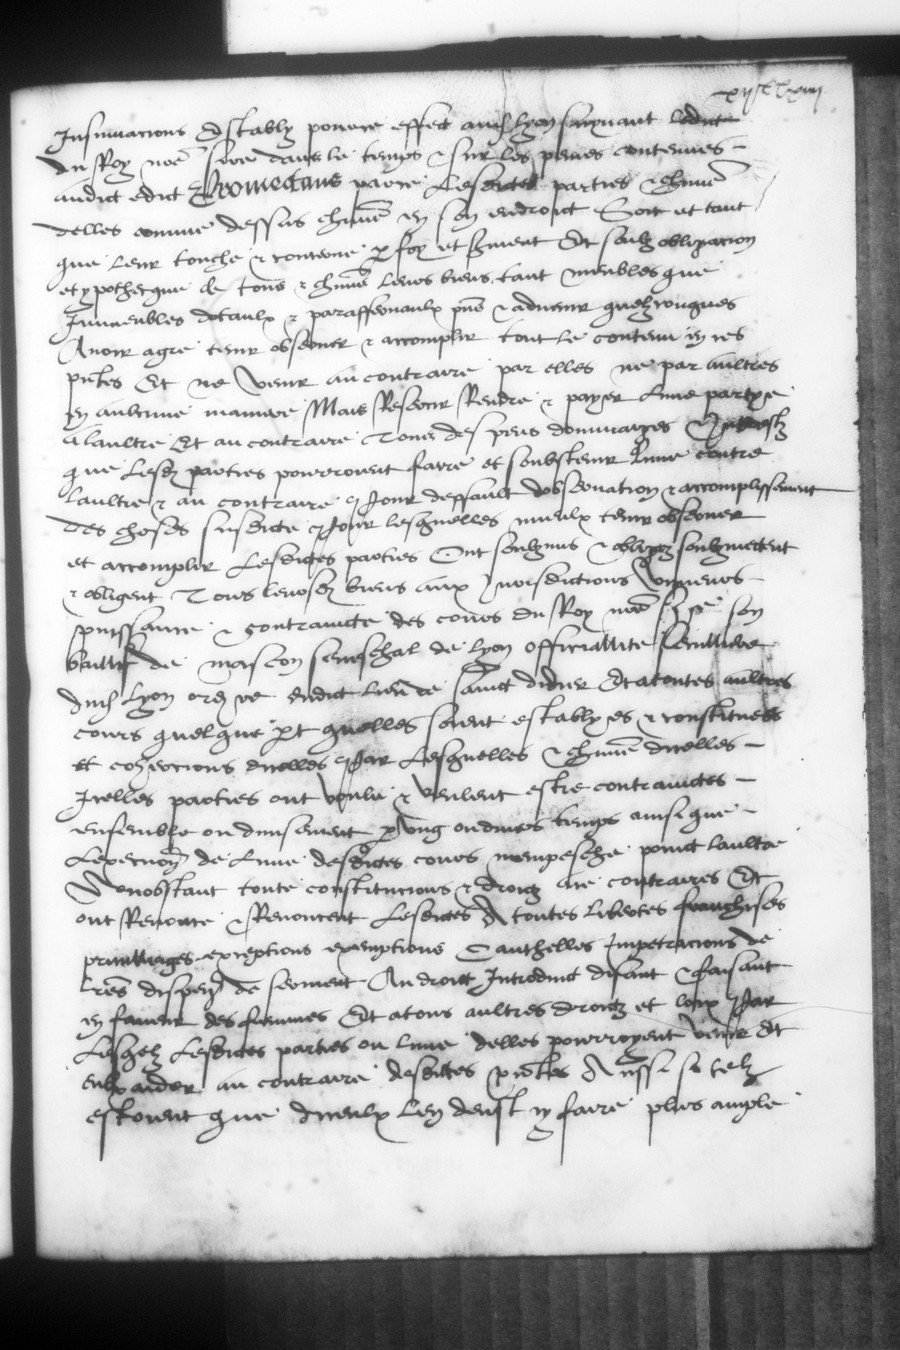 Insinuacions establyz pour ce effect audit Lyon suyvant ledict
du Roy nre sire dans le temps & sur les peines contenues
audict edict Promectans par ce lesdictes parties & chune
delles comme dessus chune en son endroict Soit et tant
que leur touche & concerne p foy et serment Et soubz obligacion
et ypothecque de tous & chuns leurs biens tant meubles que
Immeubles dotaulx & paraffernaulx pns & advenir quelzconques
Avoir agre tenir observer & accomplir tout le contenu en ces
pntes Et ne venir au contraire par elles ne par aultres
en aulcune maniere Mais Reffere Rendre & payer lune partye
a laultre Et au contraire Tous despens dommaiges
que lesd parties pourroient faire et soubstenir lune contre
laultre & au contraire pour deffault dobservation & accomplissement
des choses susdictes Pour lesquelles mieulx tenir observer
et accomplir Lesdictes parties Ont soubzmis & obligez soubzmectent
& obligent Tous leursd biens aux Jurisdictions
puissance & contraincte des cours du Roy nre sire son
baillif de mascon seneschal de Lyon officiallite
dud Lyon ordre dudict lieu de sainct didier Et a toutes aultres
cours quelque pt quelles soient establyes & constituees
et cohercions dicelles Par lesquelles & chune dicelles
Icelles parties ont voulu & veulent estre contrainctes
ensemble ou divisement p ung ou divers temps ainsi que
Lexecuon de lune desdictes cours nempesche poinct laultre
Nonobstant toute constitucions & droictz a ce contraires Et
ont Renonce & Renoncent Lesdictes A toutes libertes franchises
privilleiges exceptions exemptions Cauthelles Impetracions de
lres dispens de serment Au droict Introduict disant & faisant
en faveur des femmes Et a tous aultres droictz et loix Par
lesquelz Lesdictes parties ou lune delles pourroyent venir Et
eulx aider au contraire desdictes pntes Aussi si telz
estoient que dieulx len deust y faire plus ample